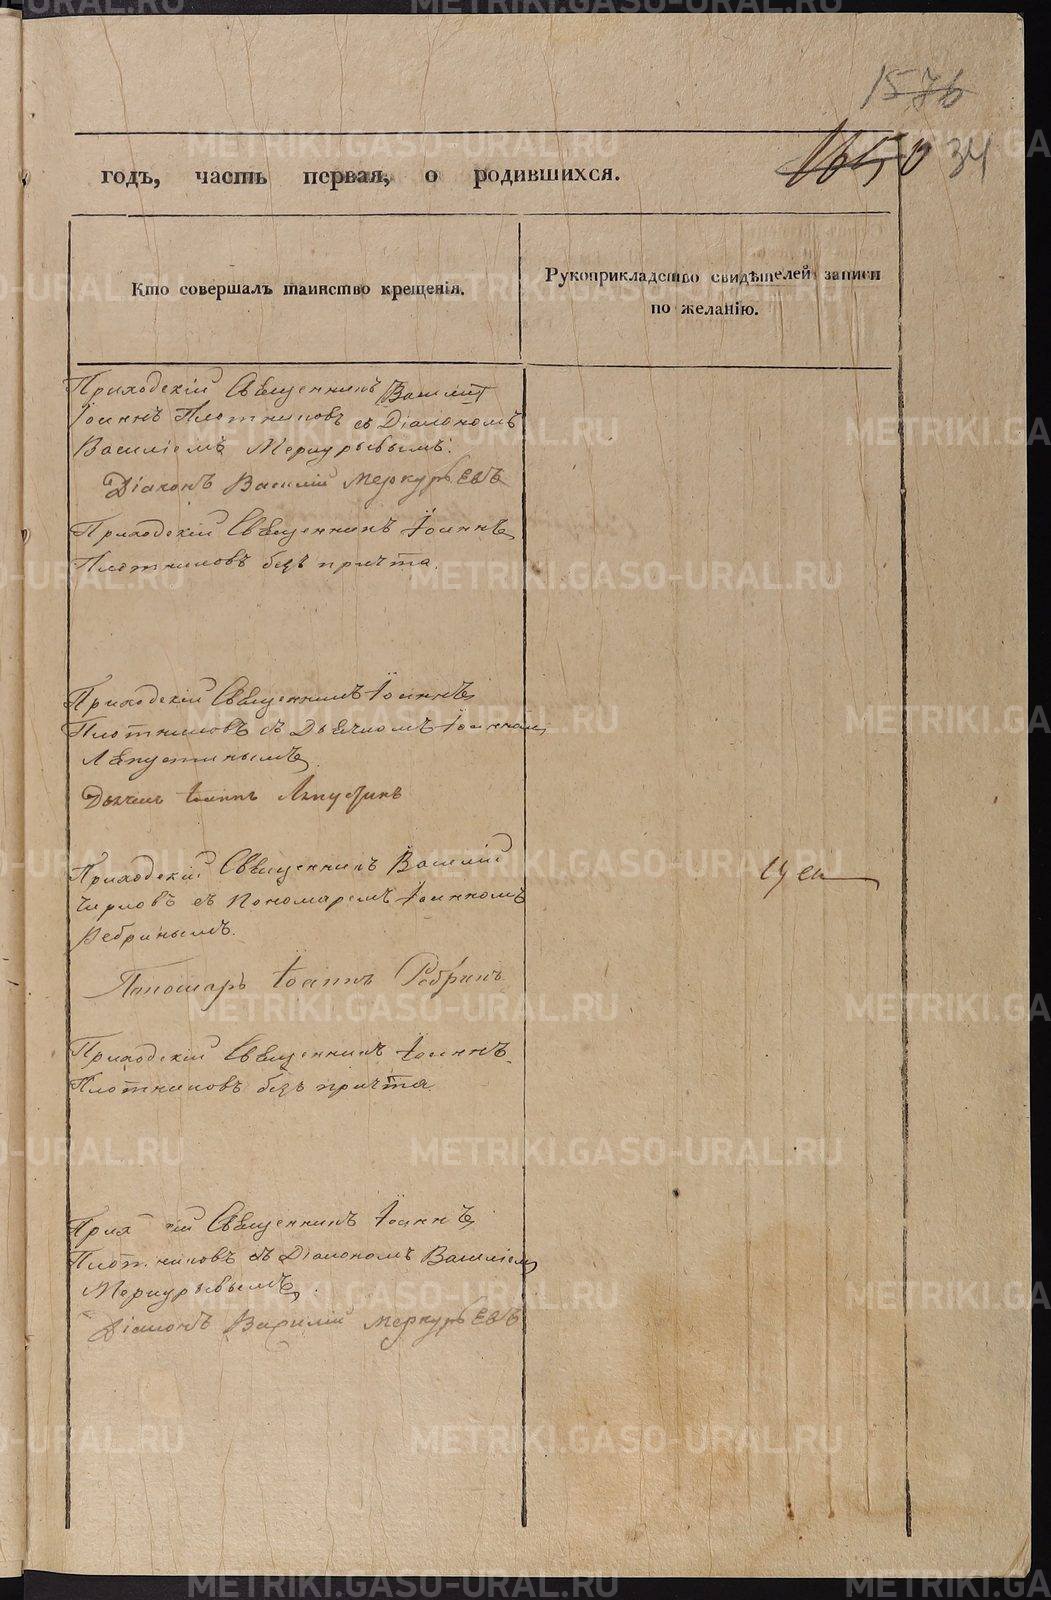 1576
1650 34
годъ, часть первая, о родившихся.
Кто совершалъ таинство крещенія.
Рукоприкладство свидѣтелей записи
по желанію.
Приходскій Священникъ [Василій]
Іоаннъ Плотниковъ съ Діакономъ
Василіемъ Меркурьевымъ.
Діаконъ Василій Меркурьевъ
Приходскій Священникъ Іоаннъ
Плотниковъ безъ причта.
Приходскій Священникъ Іоаннъ
Плотниковъ съ Дьячкомъ Іоанномъ
Ляпустинымъ.
Дьячекъ Іоаннъ Ляпустинъ
Приходскій Священникъ Василій
Чирковъ съ Пономаремъ Іоанномъ
Ребринымъ.
Пономарь Іоаннъ Ребринъ
Приходскій Священникъ Іоаннъ
Плотниковъ безъ причта
Священникъ Іоаннъ
Плотниковъ съ Діакономъ Василіемъ
Меркурьевымъ.
Діаконъ Василій Меркурьевъ
METRIKI.GASO-URAL.RU